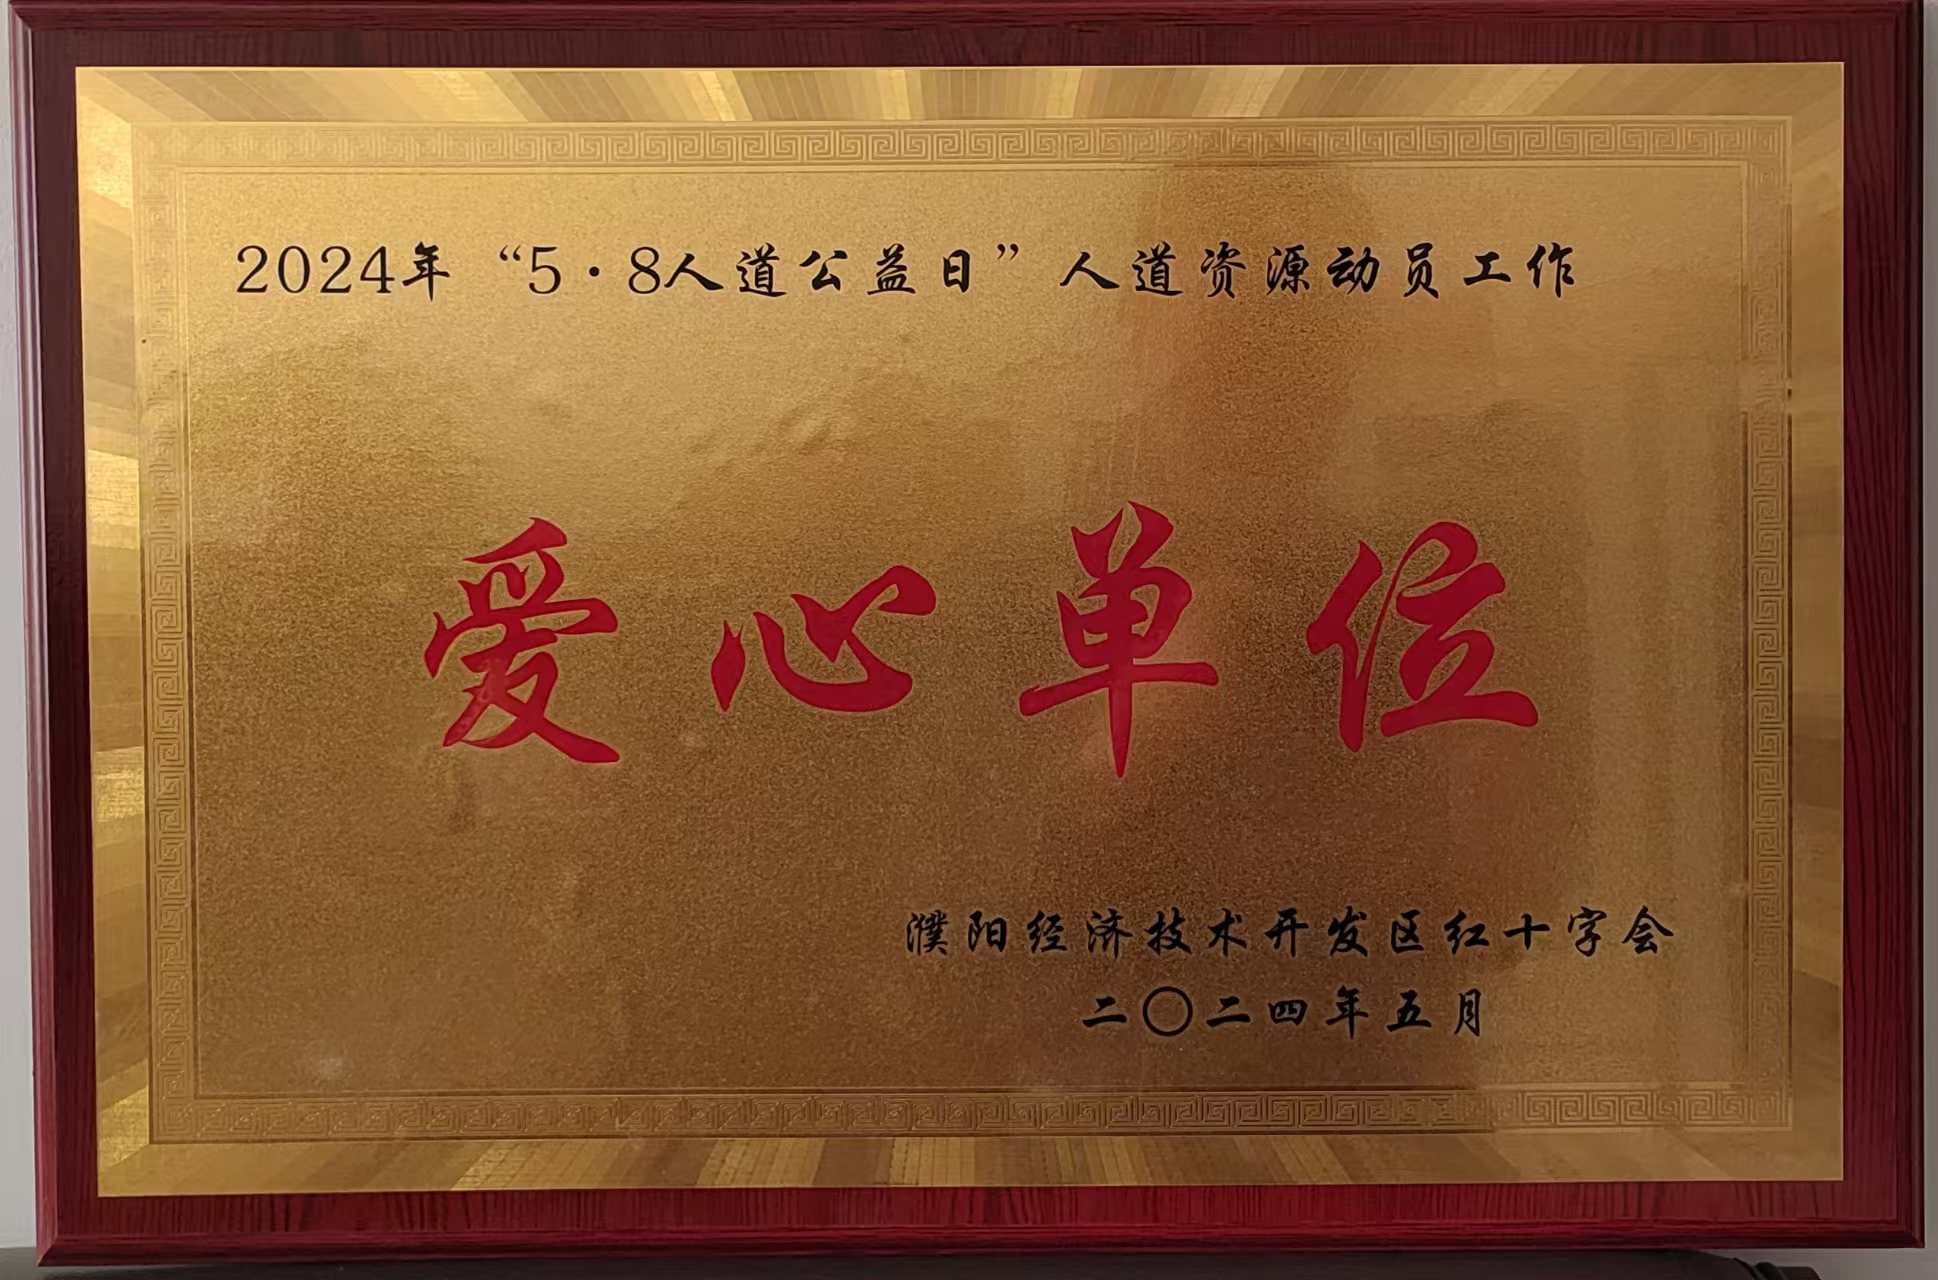 2024年“5·8人道公益日”人道资源动员工作
爱心单位
濮阳经济技术开发区红十字会
二〇二四年五月